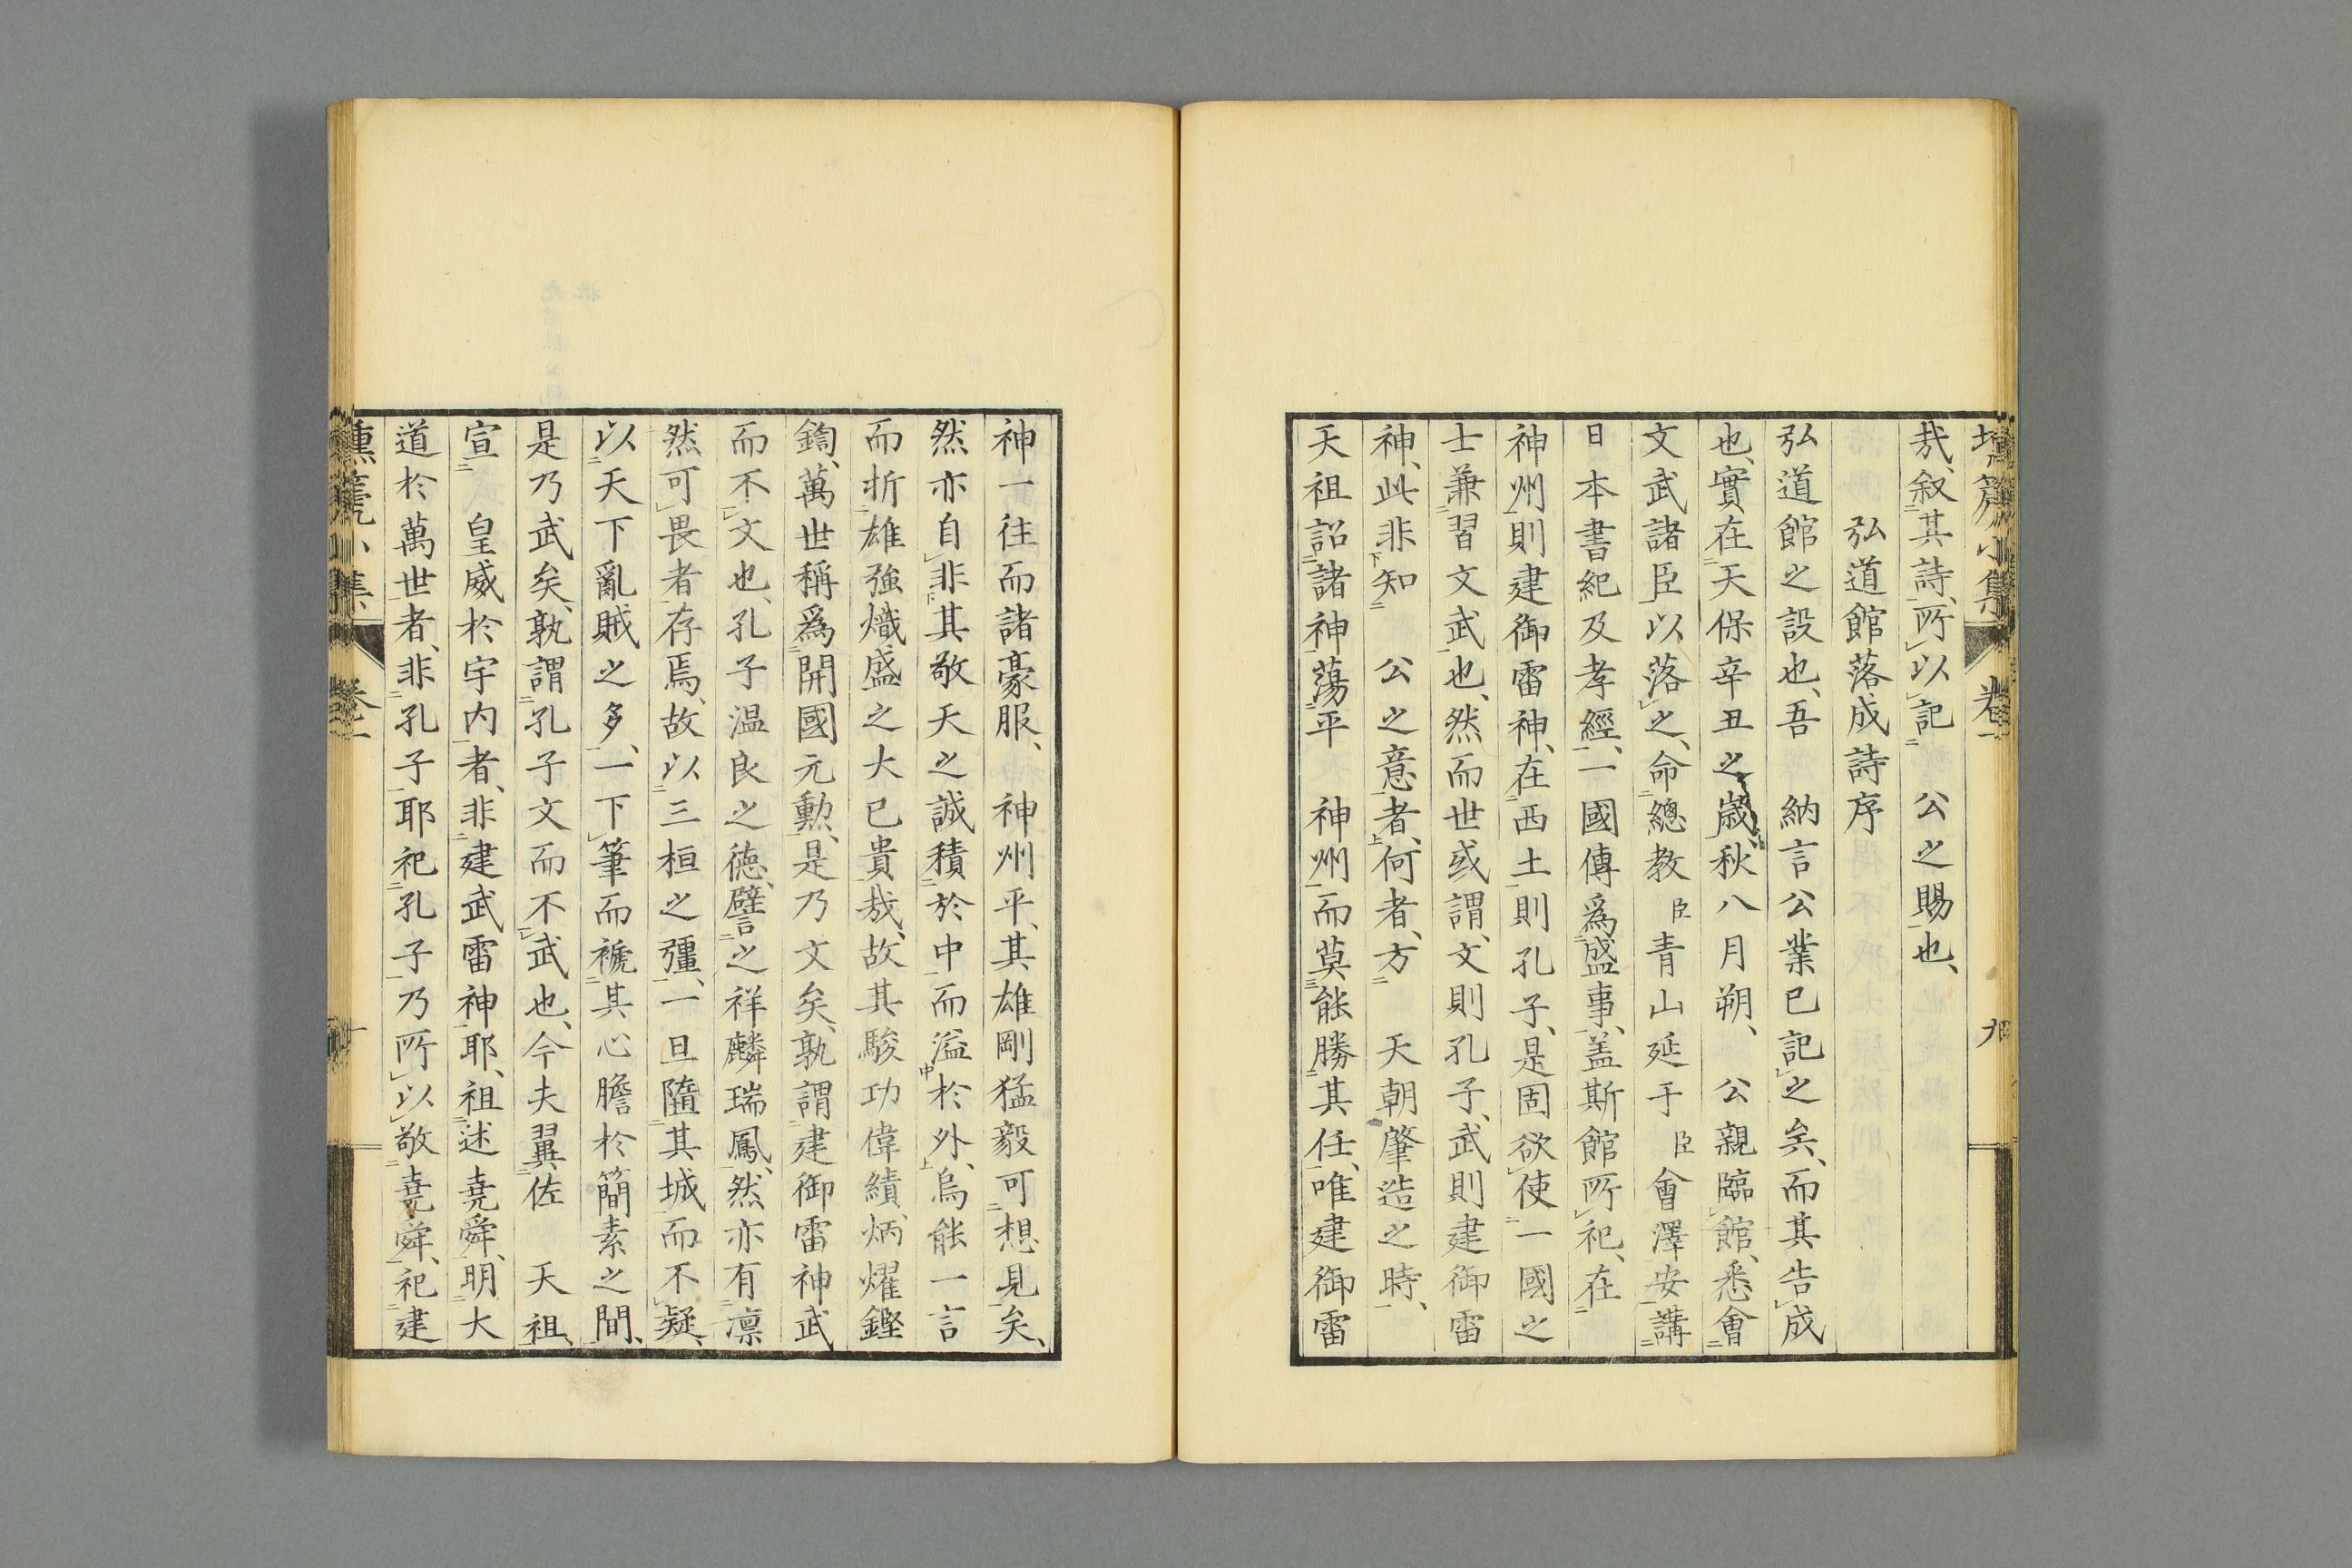 哉、叙其詩、所以記　公之賜也、
弘道館落成詩序
弘道館之設也、吾　納言公業已記之矣、而其告成
也、實在天保辛丑之歳、秋八月朔、　公親臨館、悉會
文武諸臣以落之、命總教臣青山延于臣會澤安講
日本書紀及孝經、一國傳爲盛事、盖斯館所祀、在
神州則建御雷神、在西土則孔子、是固欲使一國之
士兼習文武也、然而世或謂、文則孔子、武則建御雷
神、此非知　公之意者、何者、方　天朝肇造之時、
天祖詔諸神蕩平　神州而莫能勝其任、唯建御雷
神一往而諸豪服、　神州平、其雄剛猛毅可想見矣、
然亦自非其敬天之誠積於中而溢於外、烏能一言
而折雄強熾盛之大已貴哉、故其駿功偉績、炳燿鏗
鍧、萬世稱爲開國元勳、是乃文矣、孰謂建御雷神武
而不文也、孔子温良之徳、譬之祥麟瑞鳳、然亦有凛
然可畏者存焉、故以三桓之彊、一旦隨其城而不疑、
以天下亂賊之多、一下筆而褫其心膽於簡素之間、
是乃武矣、孰謂孔子文而不武也、今夫翼佐　天祖、
宣　皇威於宇内者、非建武雷神耶、祖述堯舜、明大
道於萬世者、非孔子耶祀孔子乃所以敬堯舜、祀建
壎篪小集　卷一　九
壎篪小集　卷一　十